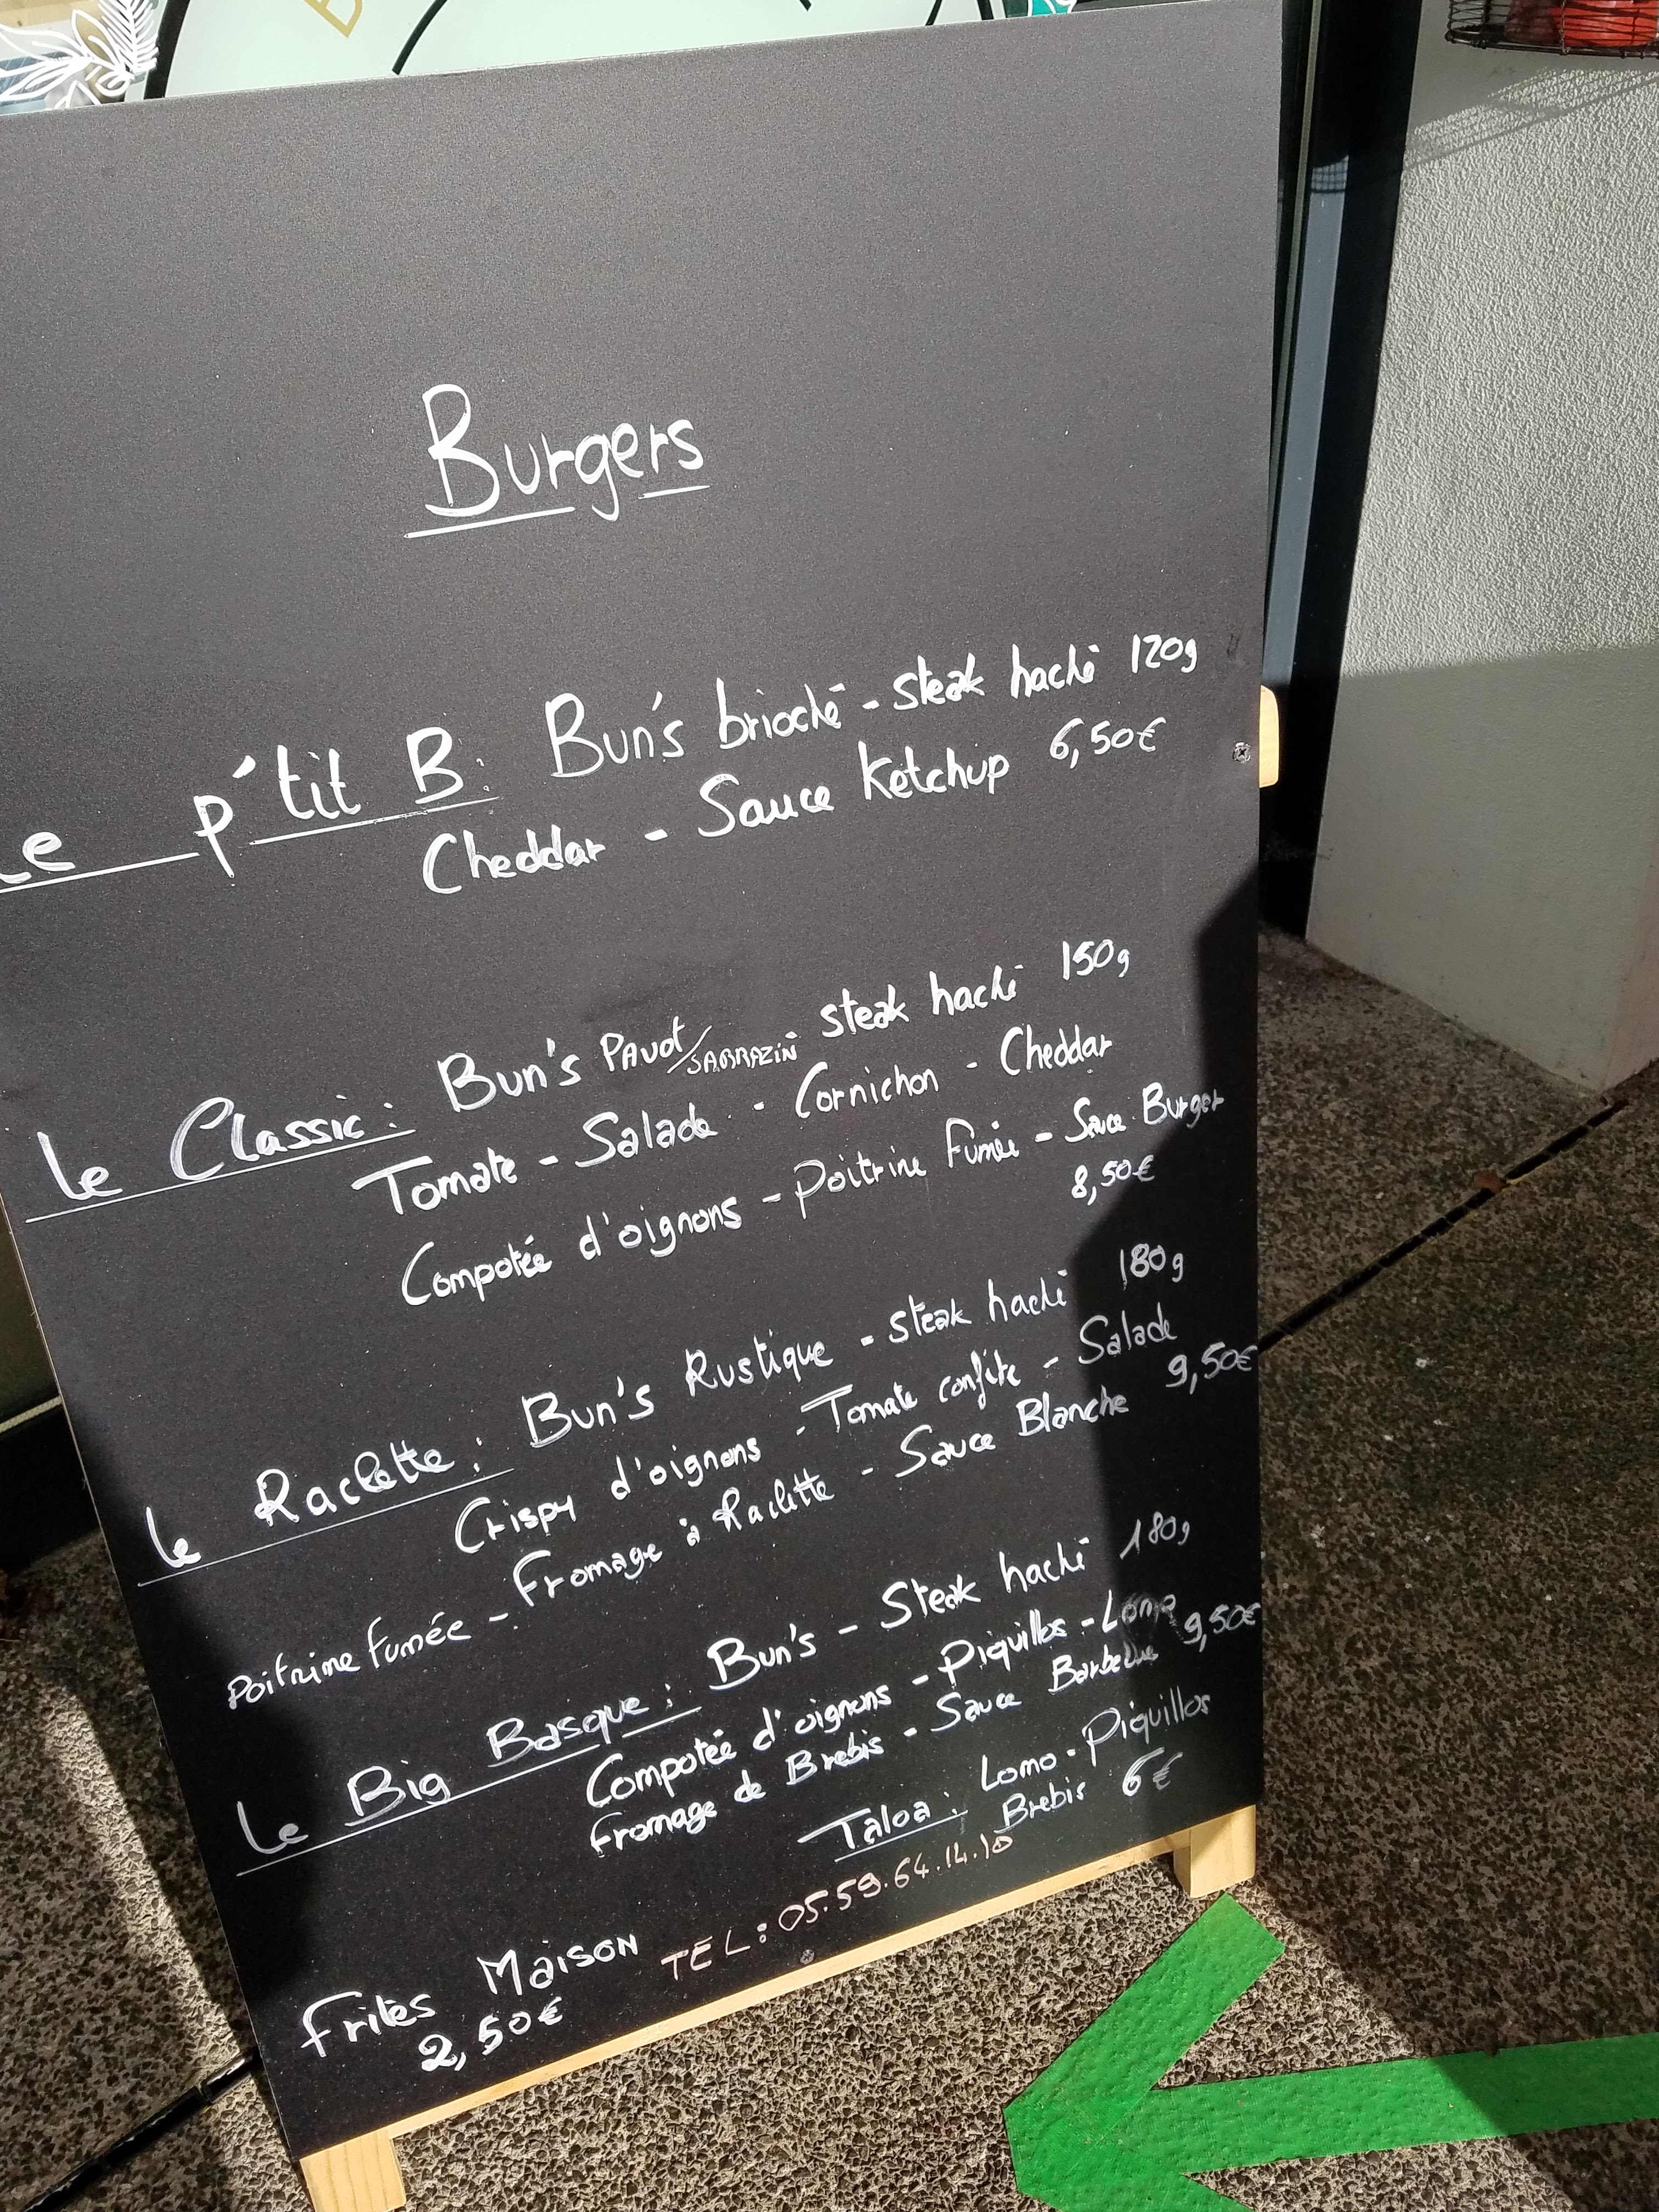 B
Burgers
Le p'tit B: Bun's brioché - steak haché 120g
Cheddar - Sauce Ketchup 6,50€
Le Classic: Bun's PAVOT/SARRAZIN steak haché 150g
Tomate - Salade - Cornichon - Cheddar
Compotée d'oignons - Poitrine Fumée - Sauce Burger
8,50€
Le Raclette: Bun's Rustique - steak haché 180g
Crispy d'oignons - Tomate confite - Salade
Poitrine fumée - Fromage à Raclette - Sauce Blanche 9,50€
Le Big Basque: Bun's - Steak haché 180g
Compotée d'oignons - Piquillos - Lomo
Fromage de Brebis - Sauce Barbecue 9,50€
Taloa: Lomo - Piquillos
Brebis 6€
Frites MAISON TEL: 05.59.64.14.10
2,50€